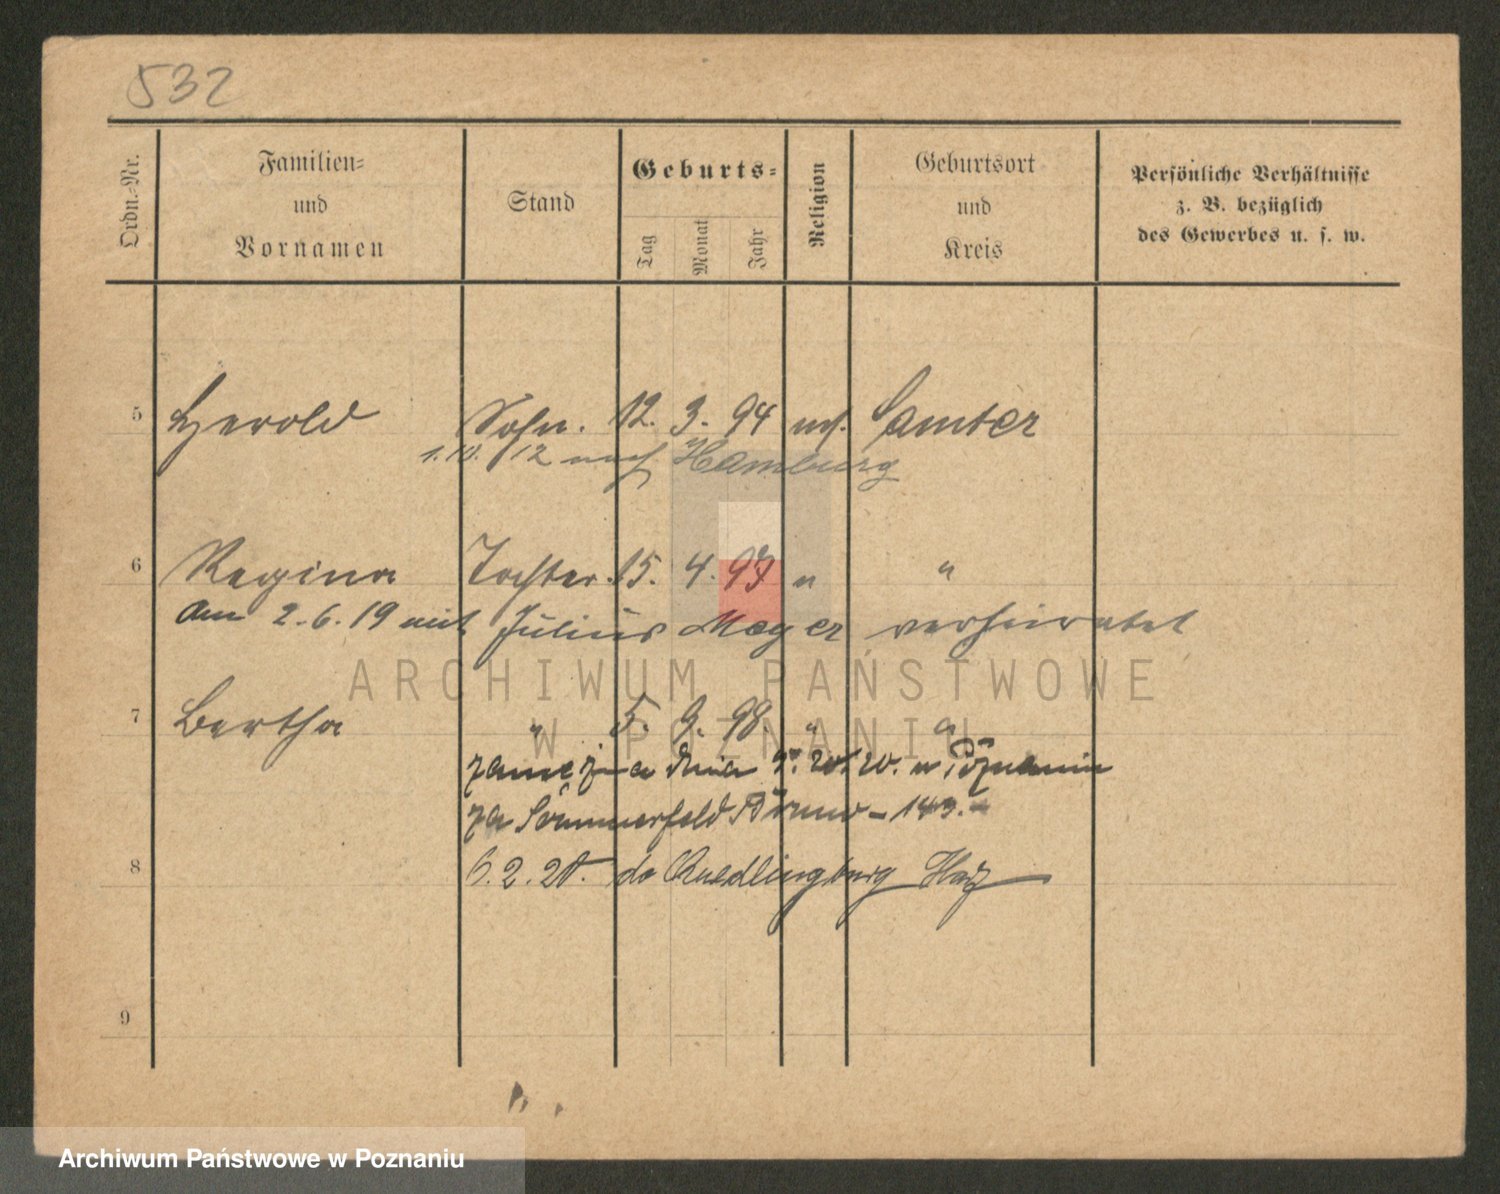 532
Ordn.-Nr.
Familien-
und
Vornamen
Stand
Geburts-
Tag
Monat
Jahr
Religion
Geburtsort
und
Kreis
Persönliche Verhältnisse
z. B. bezüglich
des Gewerbes u. s. w.
5 Herold Sohn. 12. 3. 94 mos. Samter
1.10. 12 nach Hamburg
6 Regina Tochter. 15. 4. 97 " "
am 2.6.19 mit Julius Meyer verheiratet
7 Bertha " 5. 9. 98. " "
zamężna dnia 20. w Poznaniu
za Sommerfeld Bruno - 143.-
8 6.2.20. do Quedlingburg Harz
9
ARCHIWUM PAŃSTWOWE
W POZNANIU
Archiwum Państwowe w Poznaniu